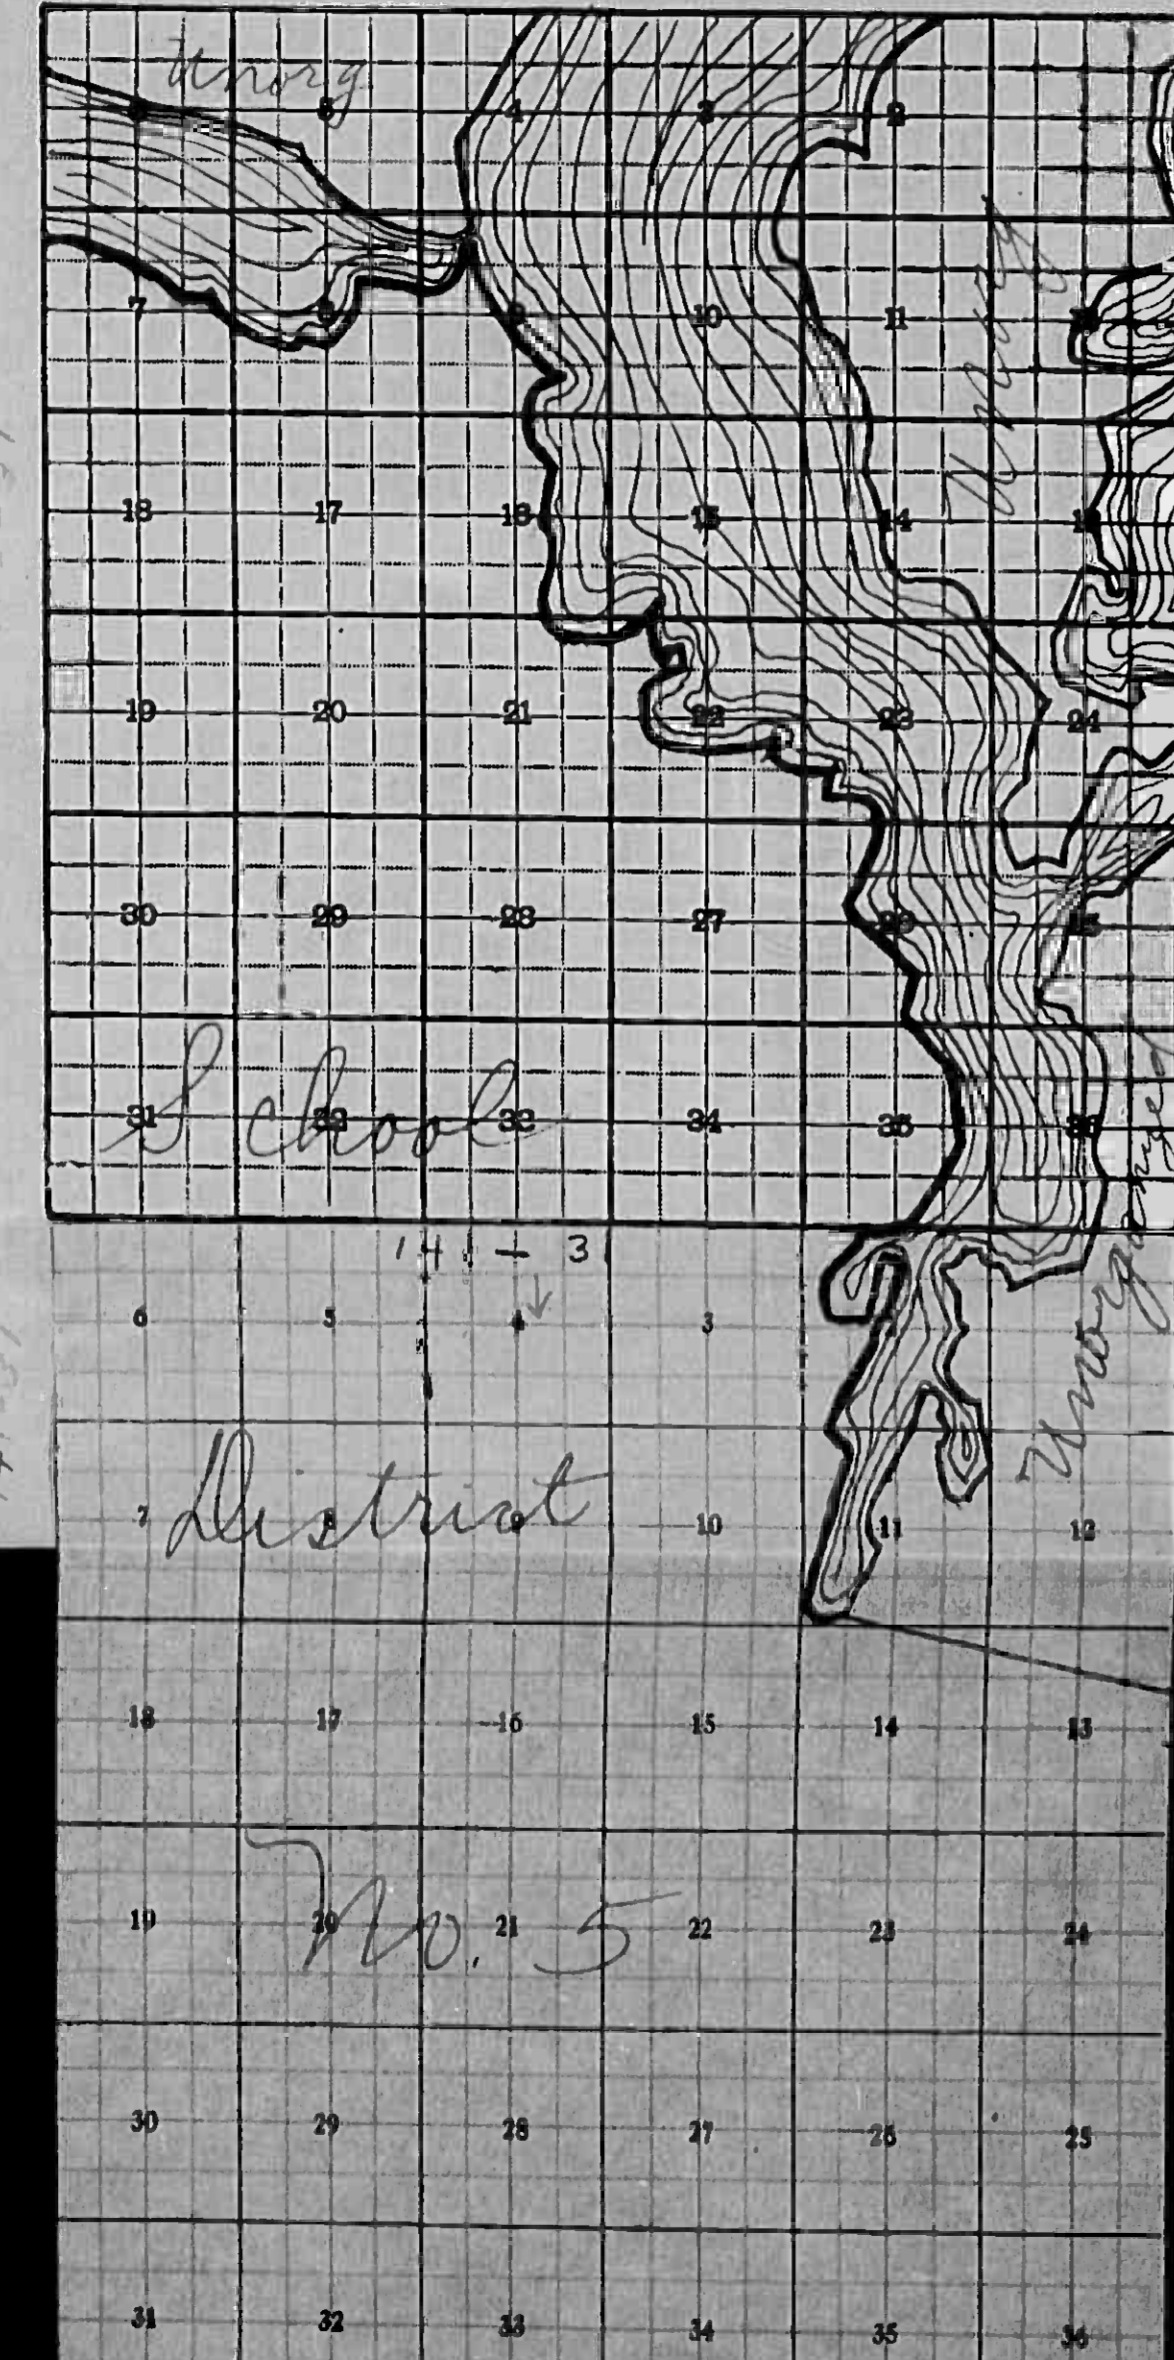 Unorg
6 5 4 3 2
7 8 9 10 11 12
Unorg
18 17 16 15 14 13
19 20 21 22 23 24
30 29 28 27 26 25
31 32 33 34 35 36
School
Unorganized
6 5 4 3
7 8 9 10 11 12
District
18 17 16 15 14 13
19 20 21 22 23 24
No. 5
30 29 28 27 26 25
31 32 33 34 35 36